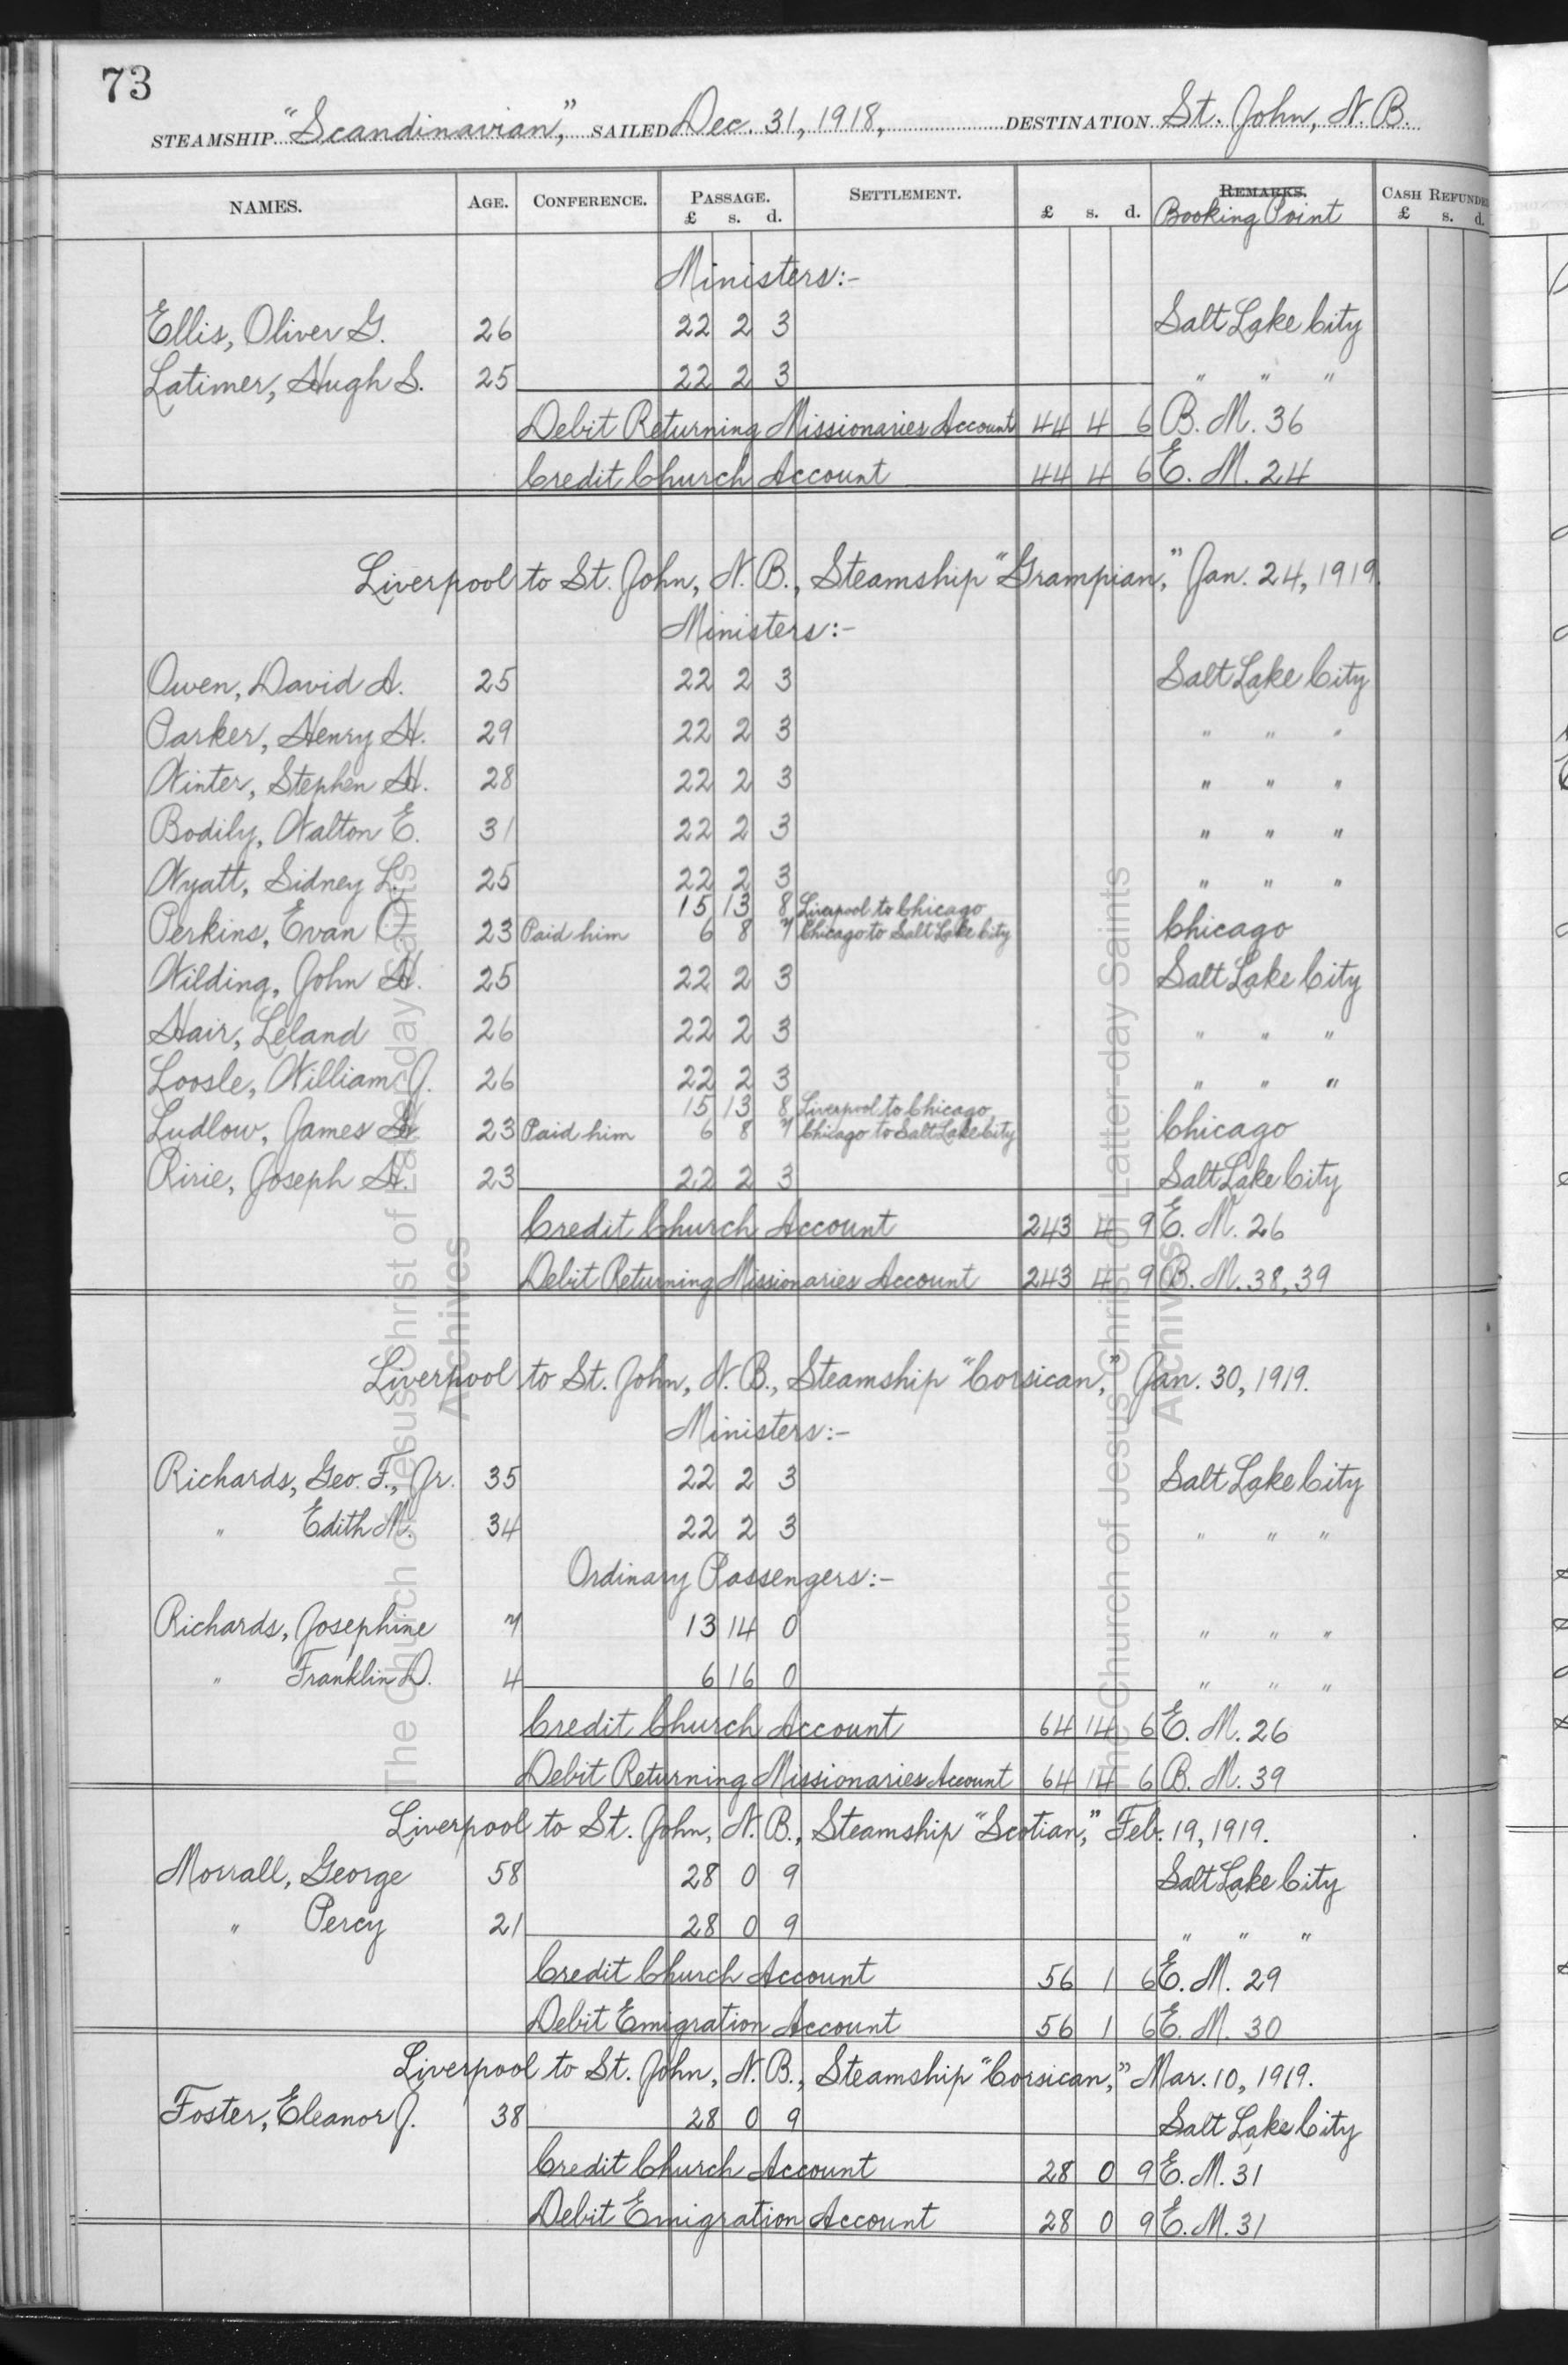 73
STEAMSHIP "Scandinavian," SAILED Dec. 31, 1918, DESTINATION St. John, N. B.
NAMES. AGE. CONFERENCE. PASSAGE. £ s. d. SETTLEMENT. £ s. d. REMARKS. Booking Point CASH REFUNDED £ s. d.
Ministers:-
Ellis, Oliver G. 26 22 2 3 Salt Lake City
Latimer, Hugh S. 25 22 2 3 " " "
Debit Returning Missionaries Account 44 4 6 B. M. 36
Credit Church Account 44 4 6 E. M. 24
Liverpool to St. John, N. B., Steamship "Grampian," Jan. 24, 1919.
Ministers:-
Owen, David A. 25 22 2 3 Salt Lake City
Parker, Henry H. 29 22 2 3 " " "
Winter, Stephen H. 28 22 2 3 " " "
Bodily, Walton E. 31 22 2 3 " " "
Wyatt, Sidney L. 25 22 2 3 " " "
15 13 8 Liverpool to Chicago
Perkins, Evan O. 23 Paid him 6 8 7 Chicago to Salt Lake City Chicago
Wilding, John H. 25 22 2 3 Salt Lake City
Hair, Leland 26 22 2 3 " " "
Loosle, William J. 26 22 2 3 " " "
15 13 8 Liverpool to Chicago
Ludlow, James 23 Paid him 6 8 7 Chicago to Salt Lake City Chicago
Ririe, Joseph H. 23 22 2 3 Salt Lake City
Credit Church Account 243 4 9 E. M. 26
Debit Returning Missionaries Account 243 4 9 B. M. 38, 39
Liverpool to St. John, N. B., Steamship "Corsican," Jan. 30, 1919.
Ministers:-
Richards, Geo. F., Jr. 35 22 2 3 Salt Lake City
" Edith M. 34 22 2 3 " " "
Ordinary Passengers:-
Richards, Josephine 7 13 14 0 " " "
" Franklin D. 4 6 16 0 " " "
Credit Church Account 64 14 6 E. M. 26
Debit Returning Missionaries Account 64 14 6 B. M. 39
Liverpool to St. John, N. B., Steamship "Scotian," Feb. 19, 1919.
Morrall, George 58 28 0 9 Salt Lake City
" Percy 21 28 0 9 " " "
Credit Church Account 56 1 6 E. M. 29
Debit Emigration Account 56 1 6 E. M. 30
Liverpool to St. John, N. B., Steamship "Corsican," Mar. 10, 1919.
Foster, Eleanor J. 38 28 0 9 Salt Lake City
Credit Church Account 28 0 9 E. M. 31
Debit Emigration Account 28 0 9 E. M. 31
The Church of Jesus Christ of Latter-day Saints
Archives
The Church of Jesus Christ of Latter-day Saints
Archives